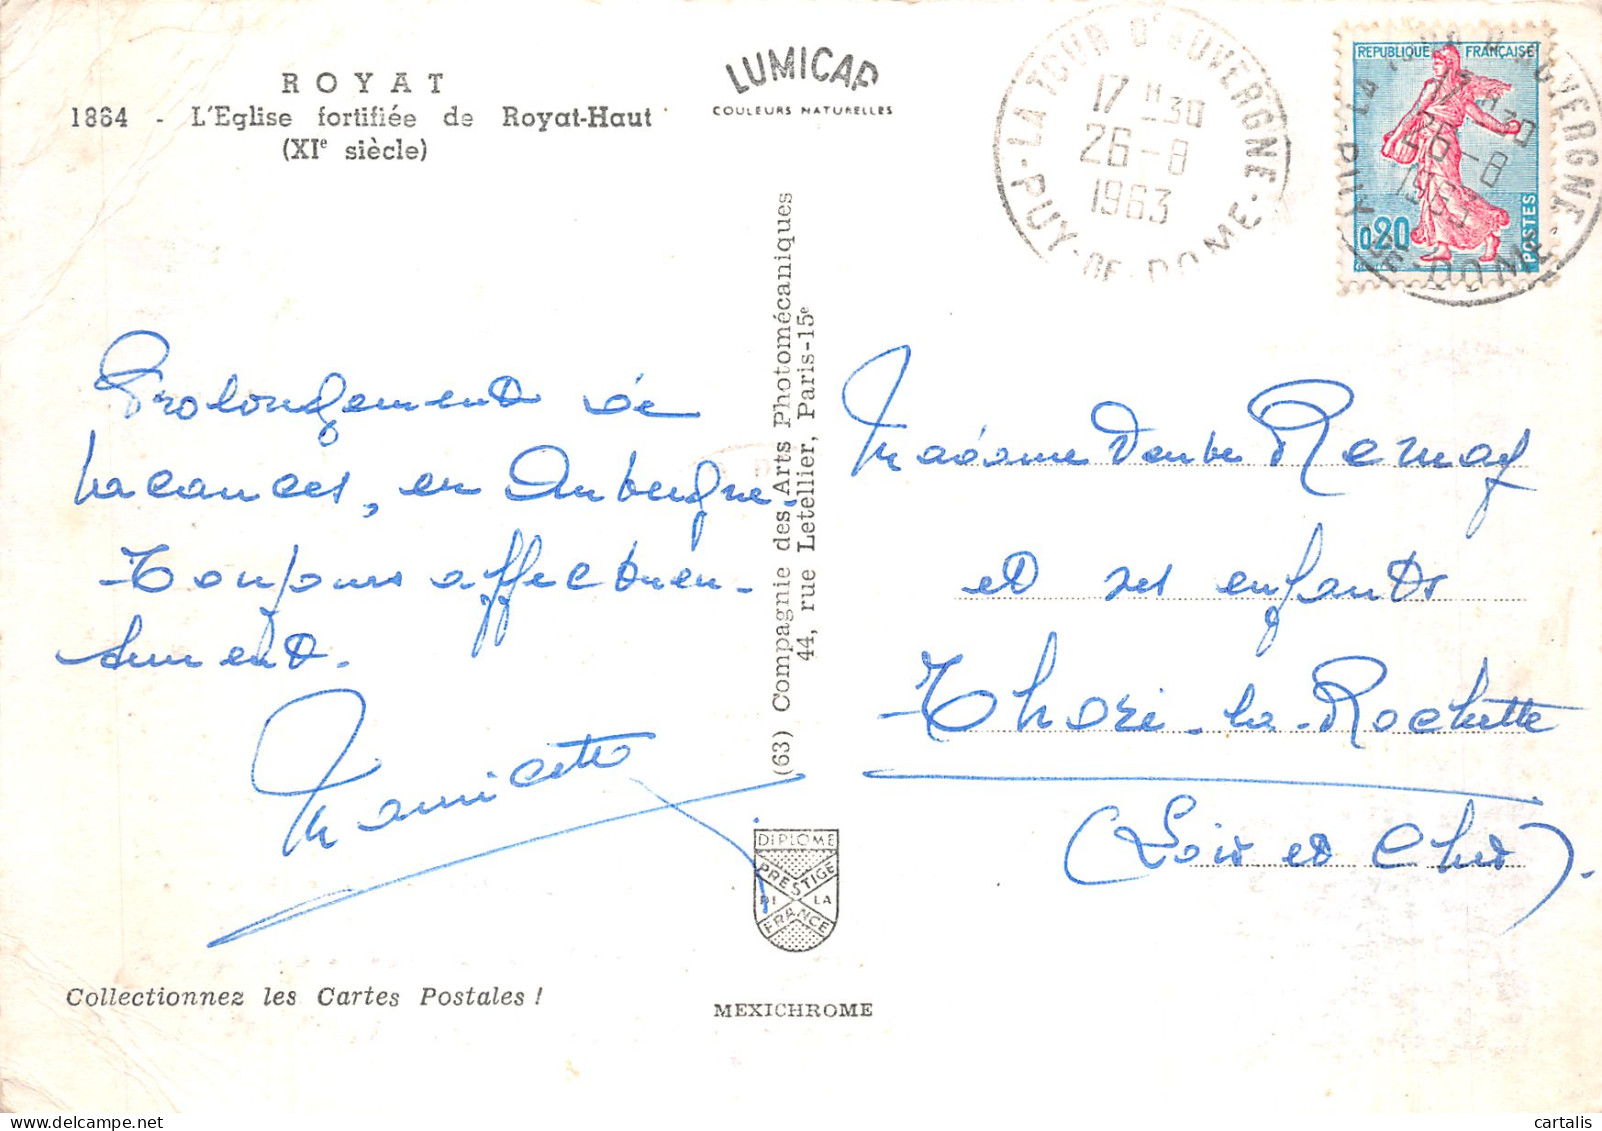 ROYAT
1884 - L'Eglise fortifiée de Royat-Haut
(XIe siècle)
LUMICAP
COULEURS NATURELLES
LA TOUR D'AUVERGNE
17 H 30
26-8
1963
PUY-DE-DOME
REPUBLIQUE FRANÇAISE
0,20
POSTES
LA TOUR D'AUVERGNE
17 H 30
26-8
1963
PUY-DE-DOME
Prolongement de
vacances, en Auvergne.
Toujours affectueu-
sement.
Mauricette
(63) Compagnie des Arts Photomécaniques
44, rue Letellier, Paris-15e
Madame Remay
et ses enfants
Thoré-la-Rochette
(Loir et Cher).
DIPLOME
PRESTIGE
DE LA
FRANCE
Collectionnez les Cartes Postales !
MEXICHROME
cartalis
www.delcampe.net